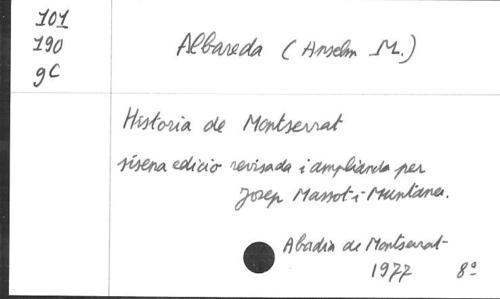 101
190
gC
Albareda (Anselm M.)
Historia de Montserrat
sisena edicio revisada i ampliada per
Josep Massot i Muntaner.
Abadia de Montserrat
1977 8º